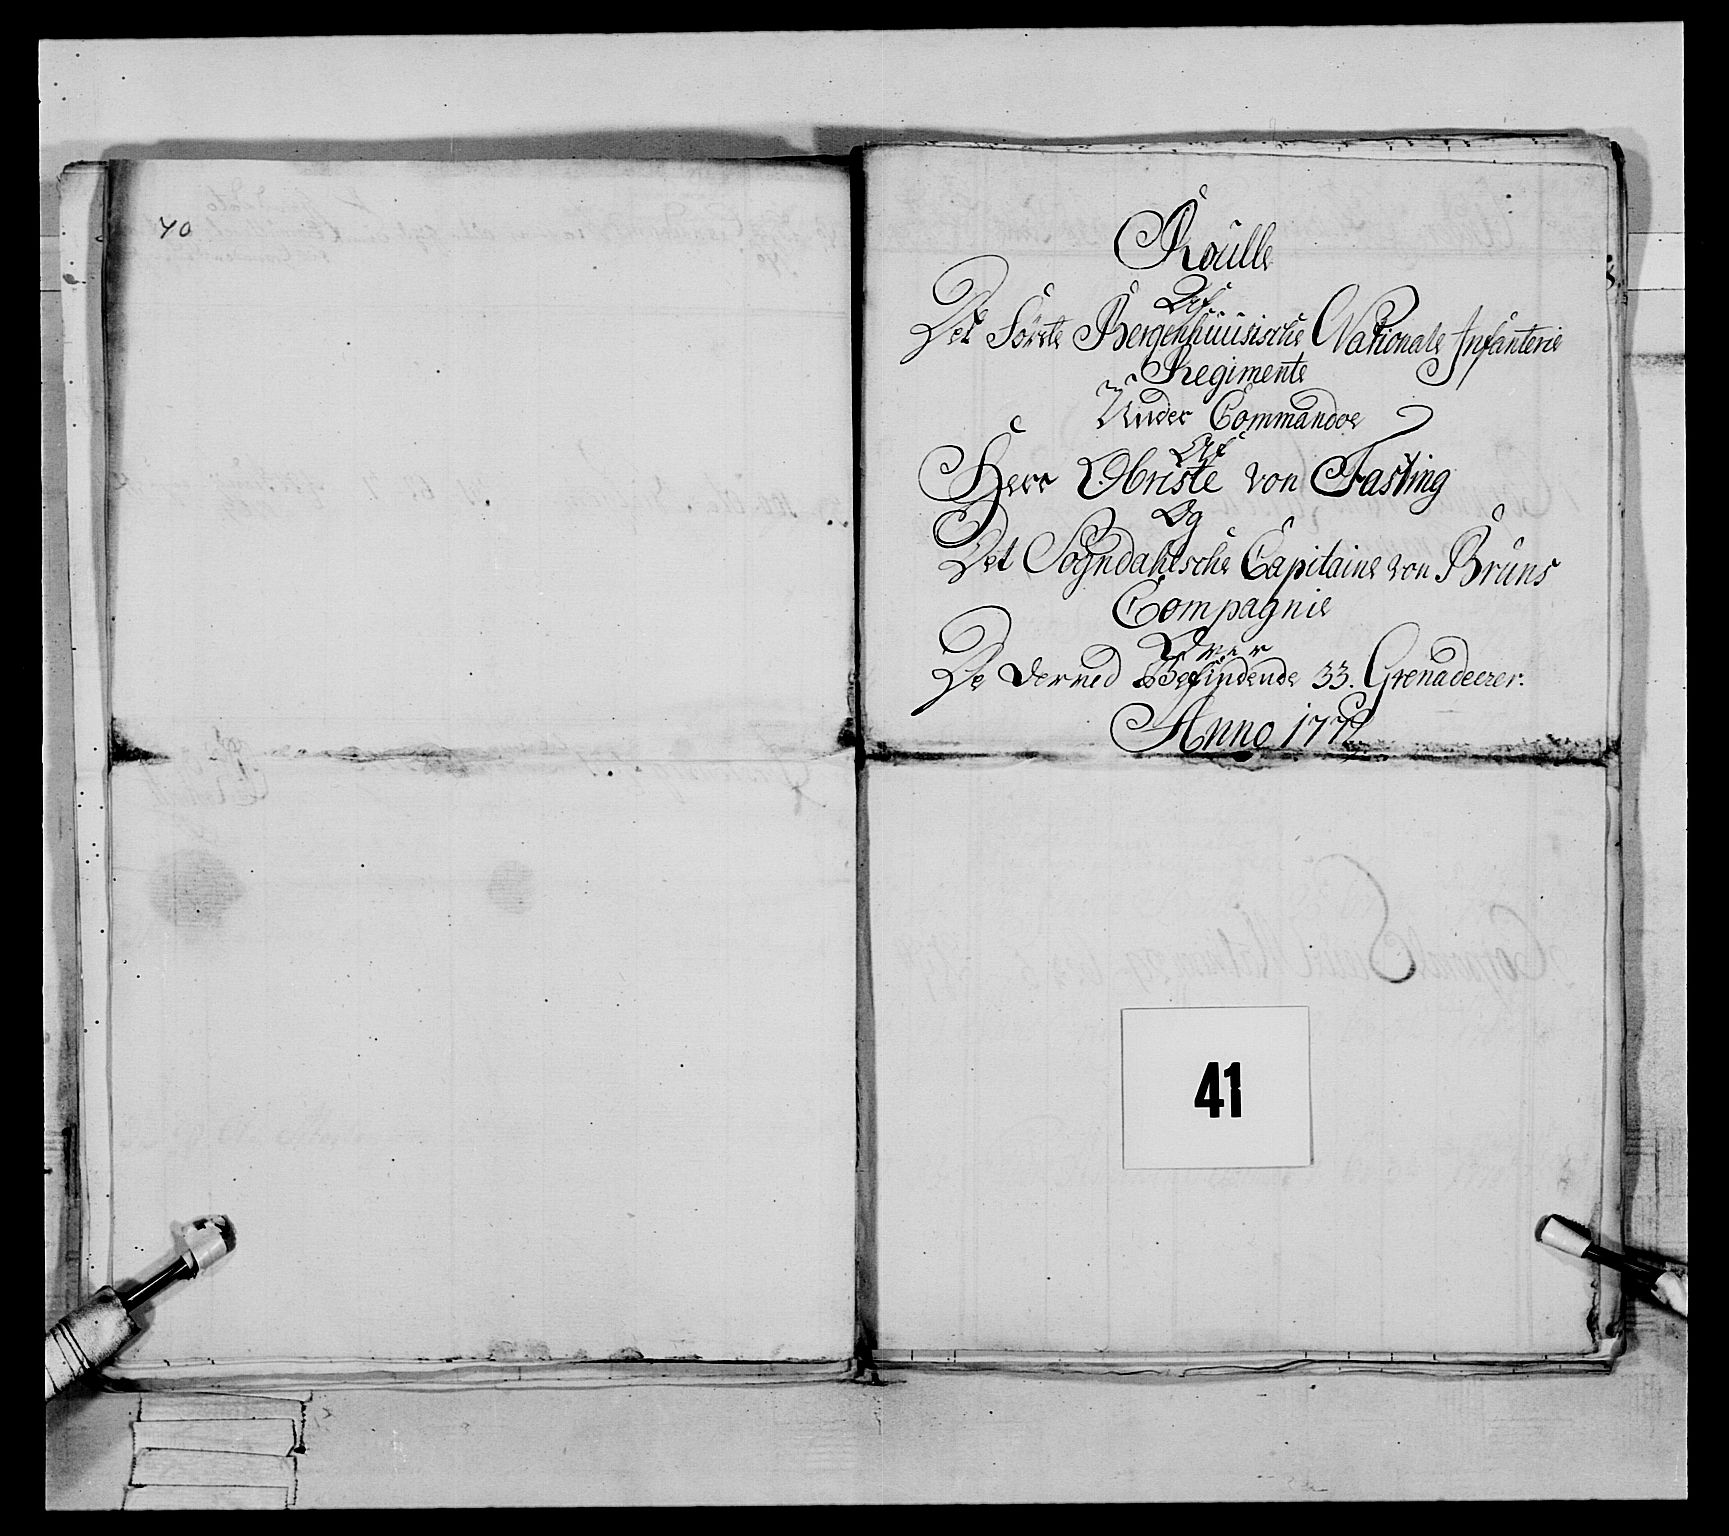 40
Roülle
Af
Det Förste Bergenhuusische Nationale Infanterie
Regimente
Under Commandoe
Af
Herr Obriste von Fasting
Og
Det Sogndahlsche Capitaine von Brüns
Compagnie
Over
De derved Befindende 33. Grenadeerer.
Anno
41